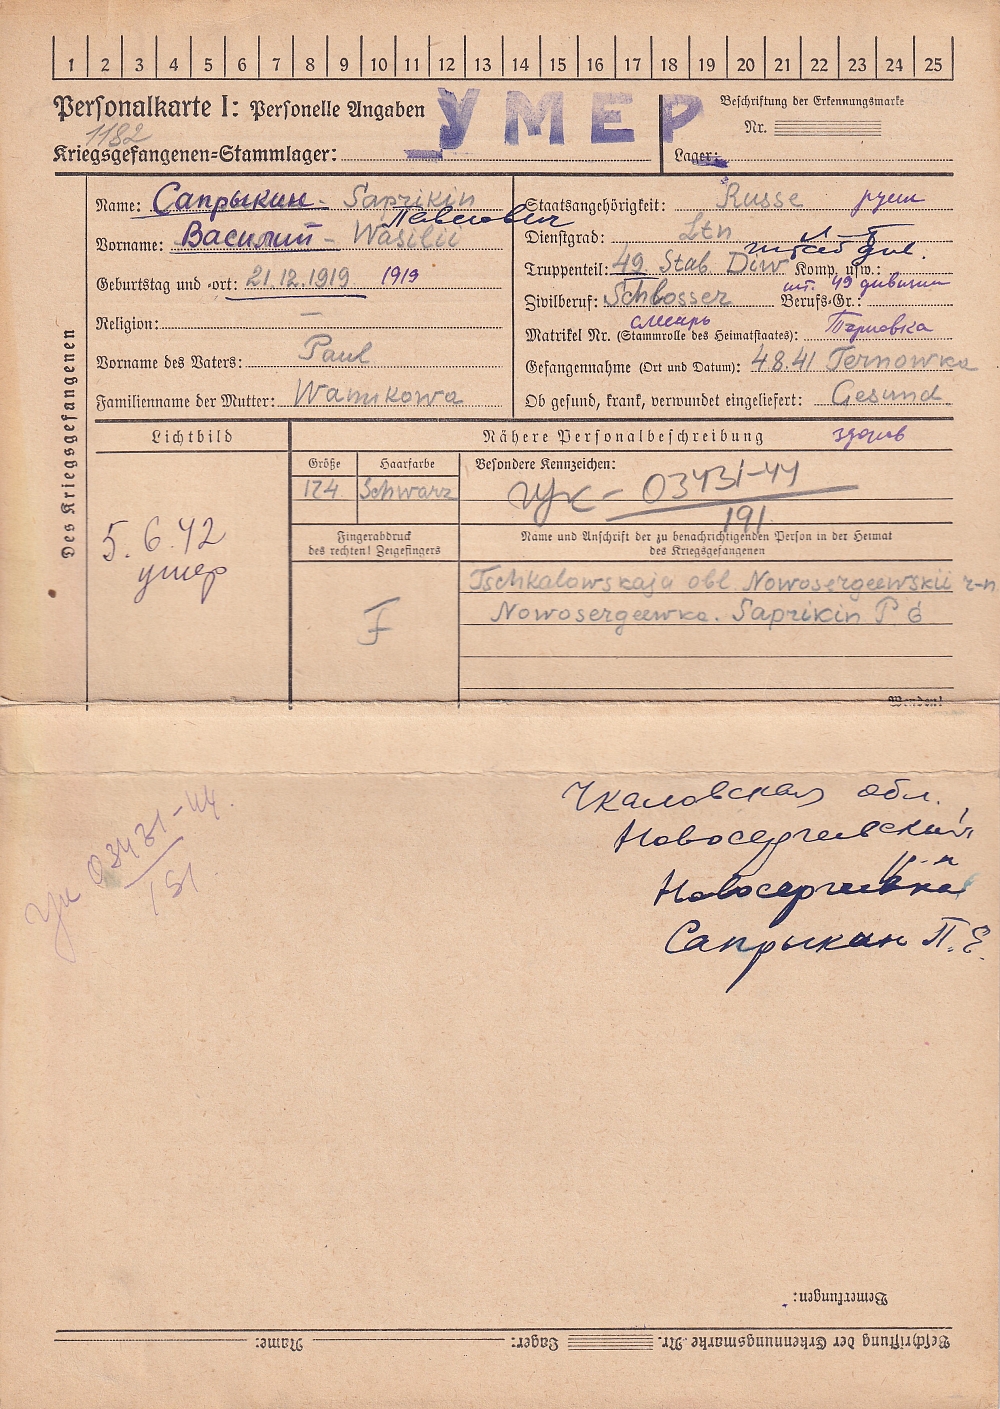 1 2 3 4 5 6 7 8 9 10 11 12 13 14 15 16 17 18 19 20 21 22 23 24 25
Personalkarte I: Personelle Angaben
УМЕР
Beschriftung der Erkennungsmarke
1182
Nr.
Kriegsgefangenen=Stammlager:
Lager:
Des Kriegsgefangenen
Name: Сапрыкин - Saprikin
Павлович
Vorname: Василий - Wasilii
Geburtstag und -ort: 21.12.1919 1919
Religion: —
Vorname des Vaters: Paul
Familienname der Mutter: Wannkowa
Staatsangehörigkeit: Russe русс
Dienstgrad: Ltn Л-т
штаб див.
Truppenteil: 49 Stab Diw Komp. usw.:
шт. 49 дивизии
Zivilberuf: Schlosser Berufs-Gr.:
слесарь
Matrikel Nr. (Stammrolle des Heimatstaates): Терновка
Gefangennahme (Ort und Datum): 4.8.41 Ternowka
Ob gesund, krank, verwundet eingeliefert: Gesund
здоров
Lichtbild
5.6.42
умер
Nähere Personalbeschreibung
Größe
174
Haarfarbe
Schwarz
Besondere Kennzeichen:
Вук - 03431-44
191
Fingerabdruck
des rechten! Zeigefingers
F
Name und Anschrift der zu benachrichtigenden Person in der Heimat
des Kriegsgefangenen
Tschkalowskaja obl Nowosergeewskii r-n
Nowosergeewka. Saprikin P. E
Wenden!
03431-44
191
Чкаловская обл.,
Новосергиевский
р-н
Новосергиевка
Сапрыкин П.Е.
Bemerkungen:
Beschriftung der Erkennungsmarke Nr. Lager: Name: